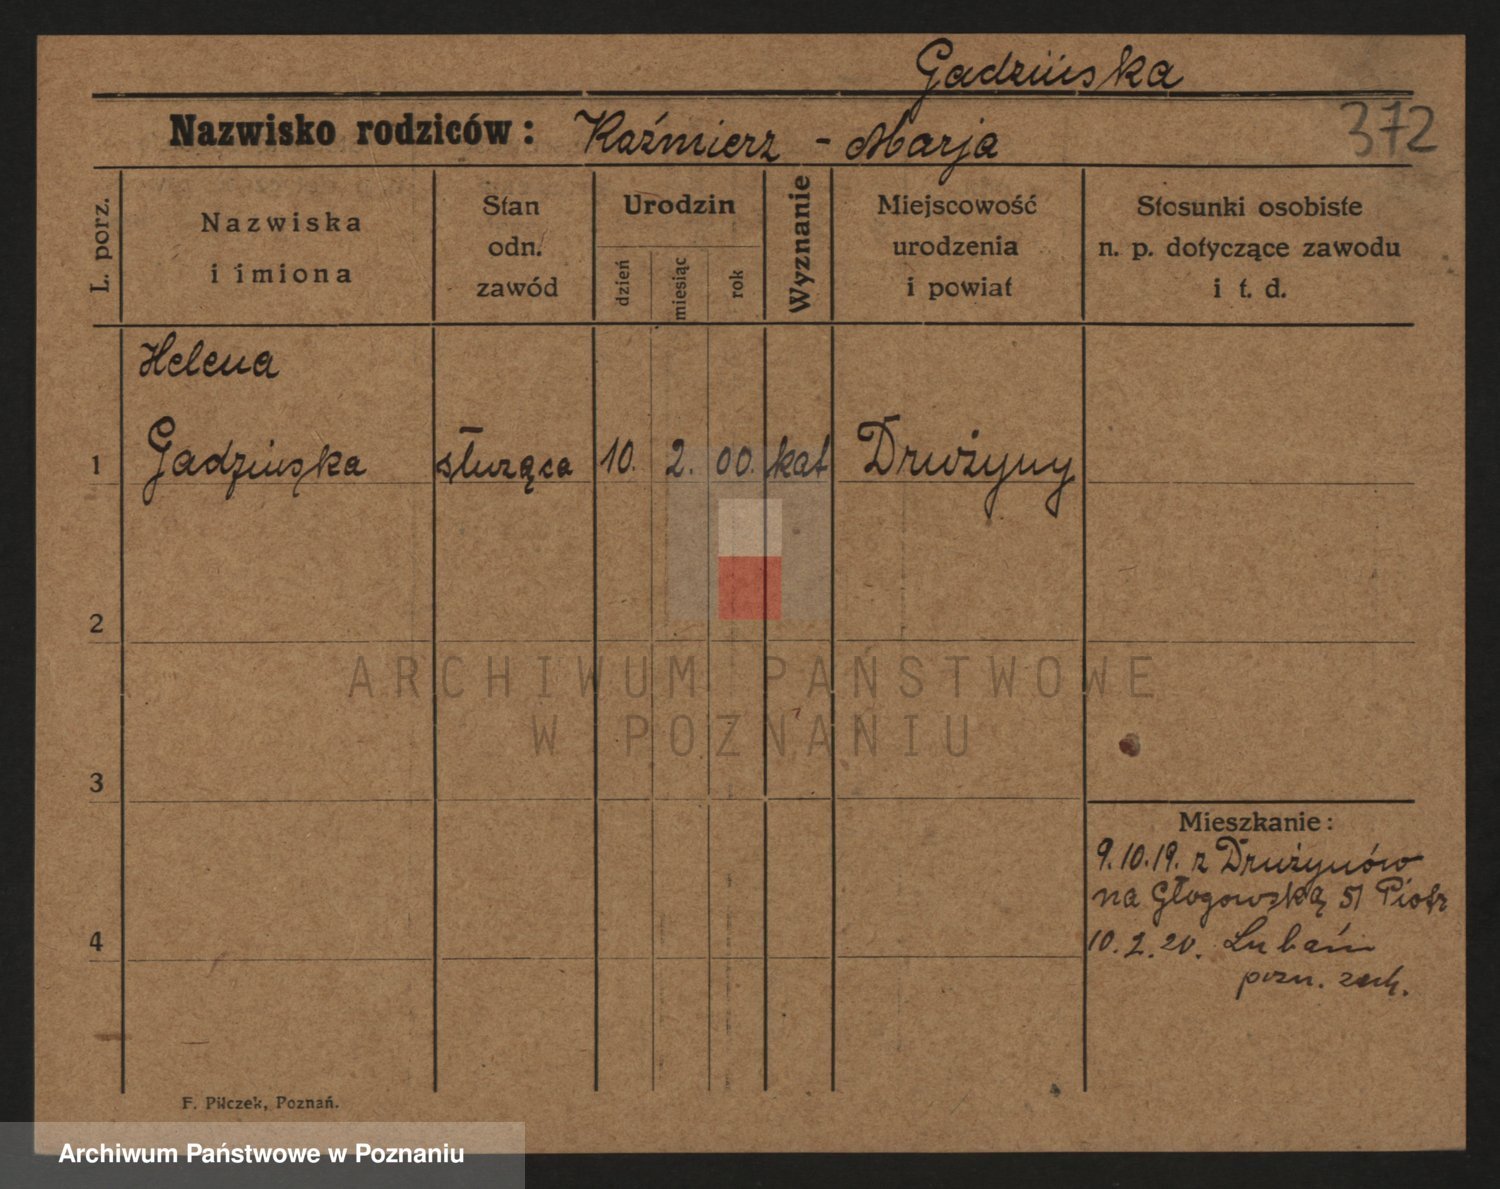 Gadzińska
372
Nazwisko rodziców: Kaźmierz - Marja
L. porz.
Nazwiska
i imiona
Stan
odn.
zawód
Urodzin
dzień
miesiąc
rok
Wyznanie
Miejscowość
urodzenia
i powiat
Stosunki osobiste
n. p. dotyczące zawodu
i t. d.
Helena
1 Gadzińska służąca 10. 2. 00. kat Drużyny
2
3
4
ARCHIWUM PAŃSTWOWE
W POZNANIU
Mieszkanie:
9.10.19. z Drużynów
na Głogowską 51 Piotr
10.2.20. Lubań
pozn. zach.
F. Pilczek, Poznań.
Archiwum Państwowe w Poznaniu